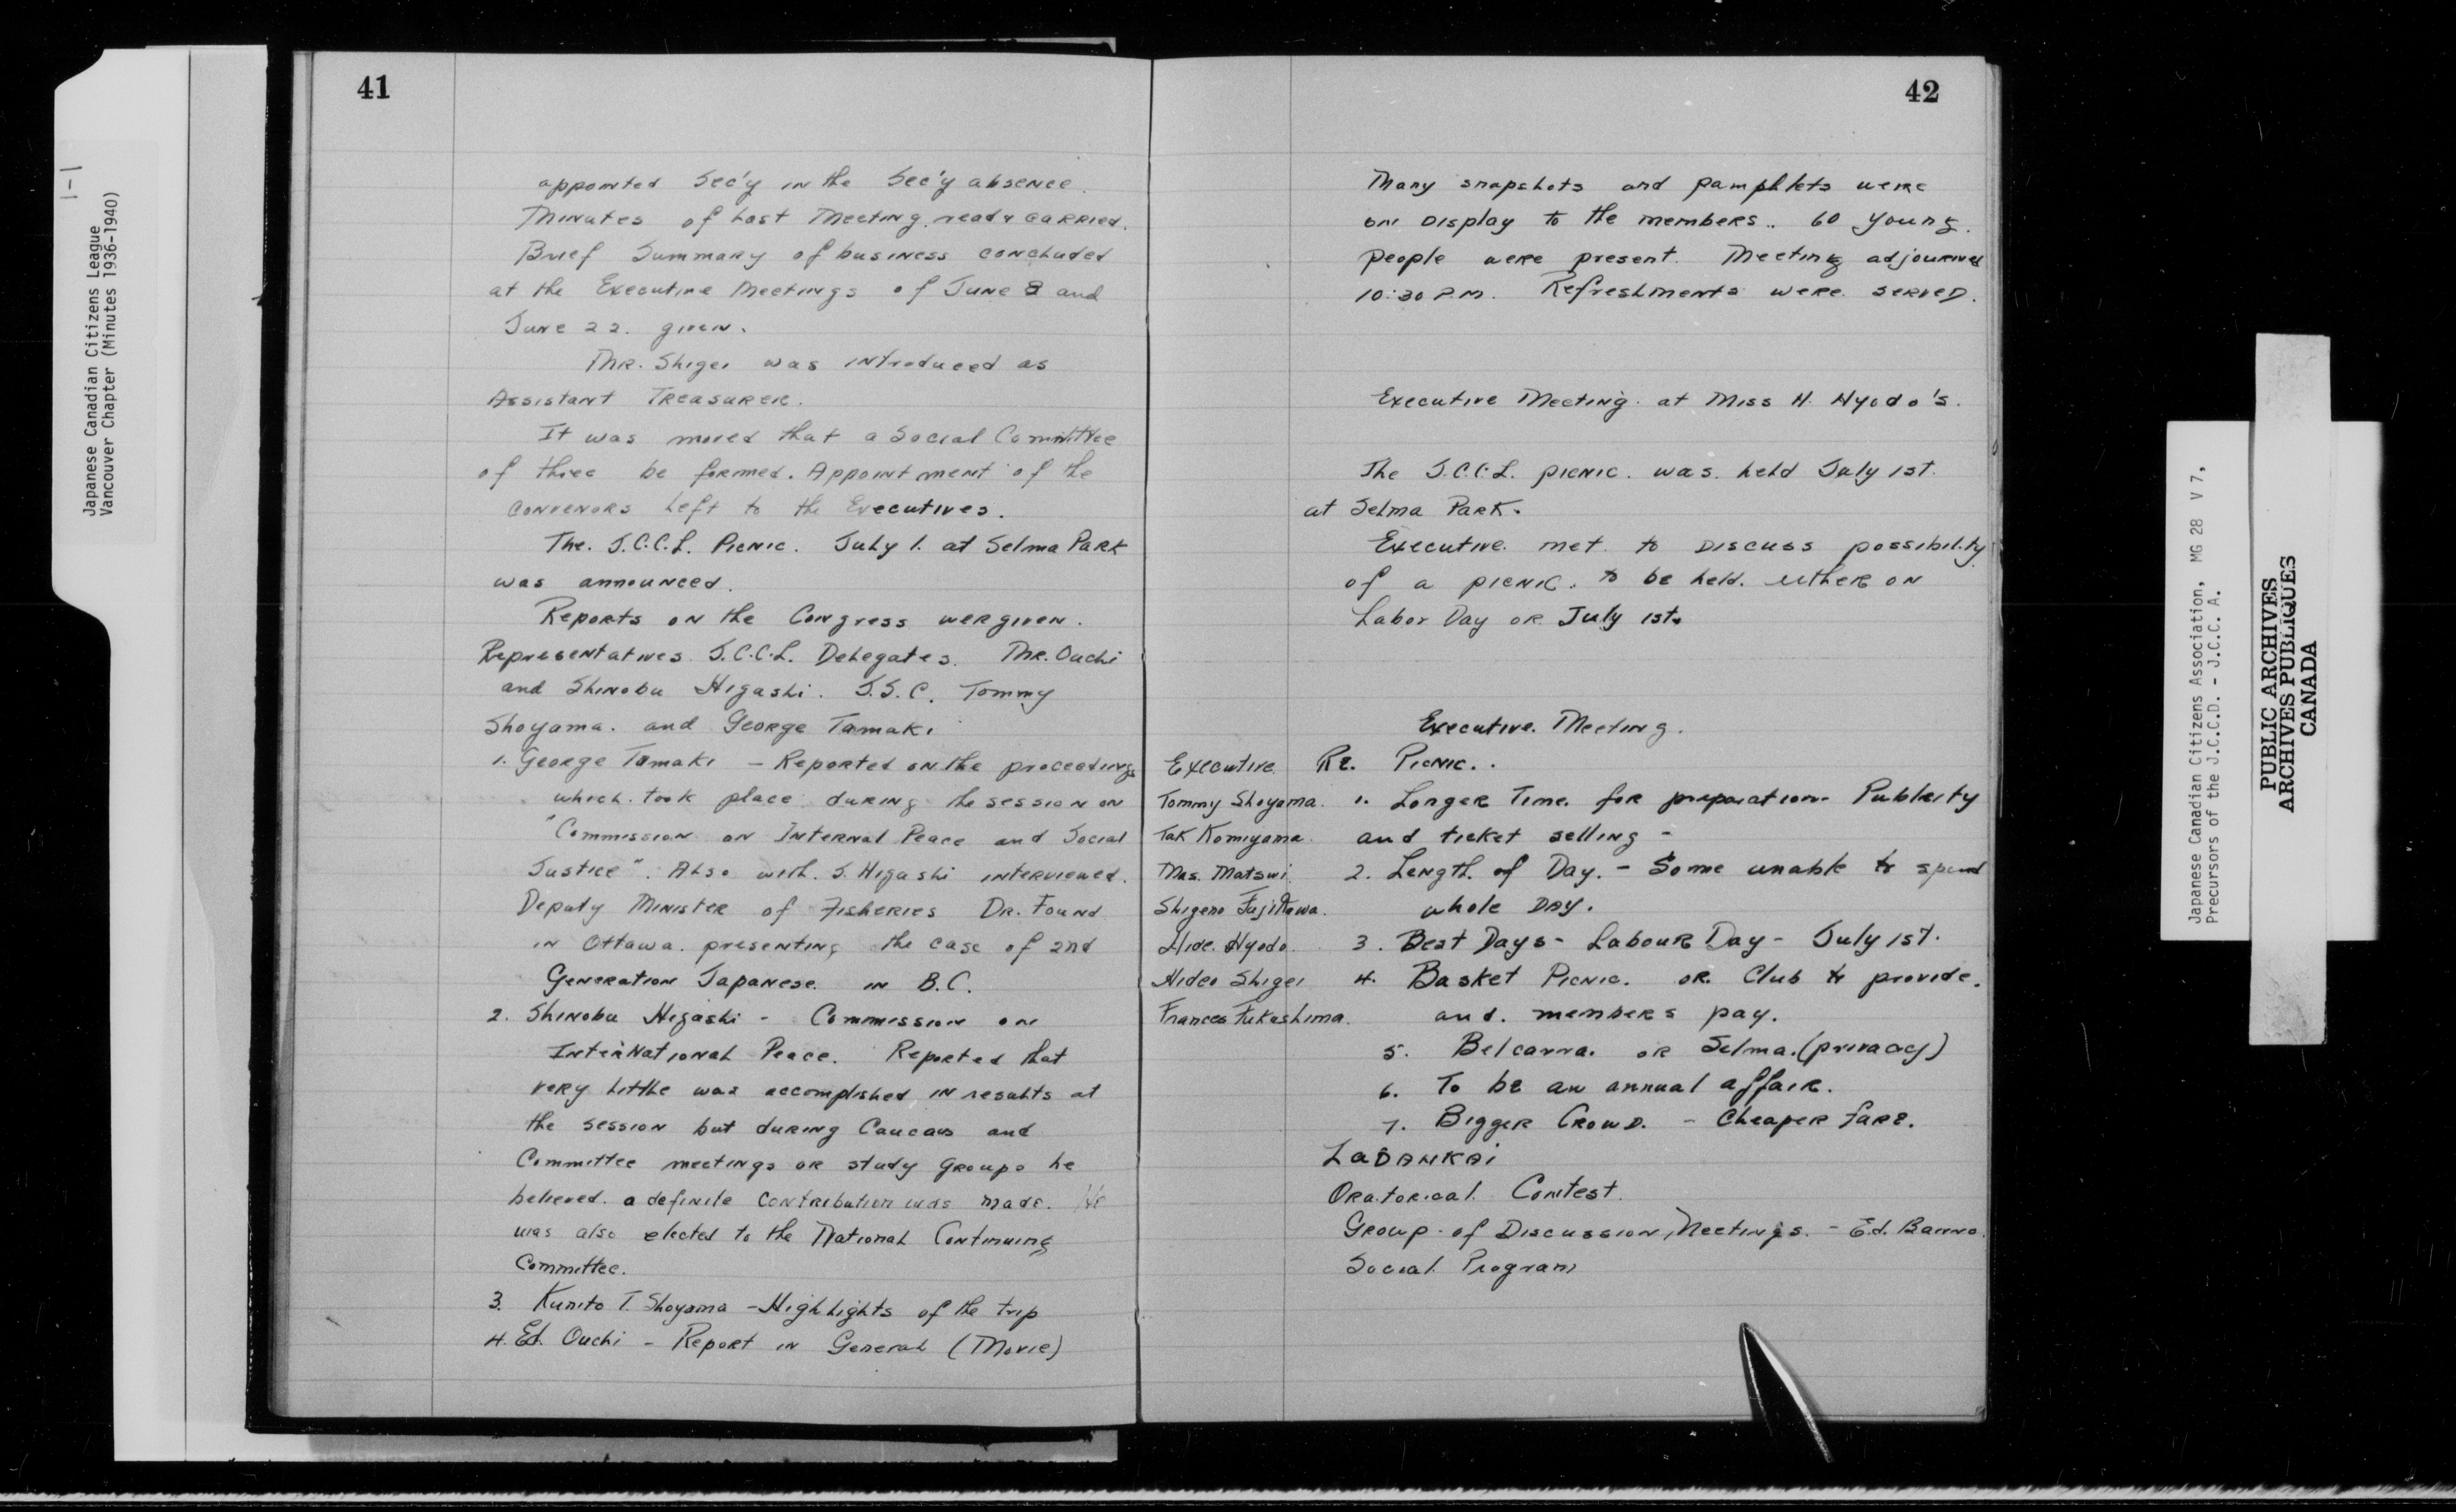 1-1
Japanese Canadian Citizens League
Vancouver Chapter (Minutes 1936-1940)
41
appointed Sec'y in the Sec'y absence.
Minutes of Last Meeting read & carried.
Brief Summary of business concluded
at the Executive Meetings of June 8 and
June 22. given.
Mr. Shigei was introduced as
Assistant Treasurer.
It was moved that a Social Committee
of three be formed. Appointment of the
convenors left to the Executives.
The J.C.C.L. Picnic. July 1. at Selma Park
was announced.
Reports on the Congress wer given.
Representatives J.C.C.L. Delegates. Mr. Ouchi
and Shinobu Higashi. J.S.C. Tommy
Shoyama. and George Tamaki
1. George Tamaki - Reported on the proceedings
which took place during the session on
"Commission on Internal Peace and Social
Justice". Also with S. Higashi interviewed.
Deputy Minister of Fisheries Dr. Found
in Ottawa. presenting the case of 2nd
Generation Japanese in B.C.
2. Shinobu Higashi - Commission on
International Peace. Reported that
very little was accomplished in results at
the session but during Caucaus and
Committee meetings or study groups he
believed a definite contribution was made. He
was also elected to the National Continuing
Committee.
3. Kunito T. Shoyama - Highlights of the trip
4. Ed. Ouchi - Report in General (Movie)
42
Many snapshots and pamphlets were
on display to the members.. 60 young
people were present. Meeting adjourned
10:30 P.M. Refreshments were served.
Executive Meeting at Miss H. Hyodo's.
The J.C.C.L. picnic. was held July 1st.
at Selma Park.
Executive met to discuss possibility
of a picnic. to be held. either on
Labor Day or July 1st.
Executive Meeting.
Executive
Tommy Shoyama.
Tak Komiyama.
Mas. Matsui.
Shigeno Fujikawa.
Hide. Hyodo.
Hideo Shigei
Frances Fukushima.
Re. Picnic..
1. Longer Time. for preparation - Publicity
and ticket selling -
2. Length of Day. - Some unable to spend
whole Day.
3. Best Days - Labour Day - July 1st.
4. Basket Picnic. or Club to provide.
and. members pay.
5. Belcarra. or Selma. (privacy)
6. To be an annual affair.
7. Bigger Crowd. - Cheaper fare.
Oratorical Contest.
Group of Discussion, Meetings. - Ed. Banno.
Social Program
Japanese Canadian Citizens Association, MG 28 V 7,
Precursors of the J.C.C.D. - J.C.C. A.
PUBLIC ARCHIVES
ARCHIVES PUBLIQUES
CANADA